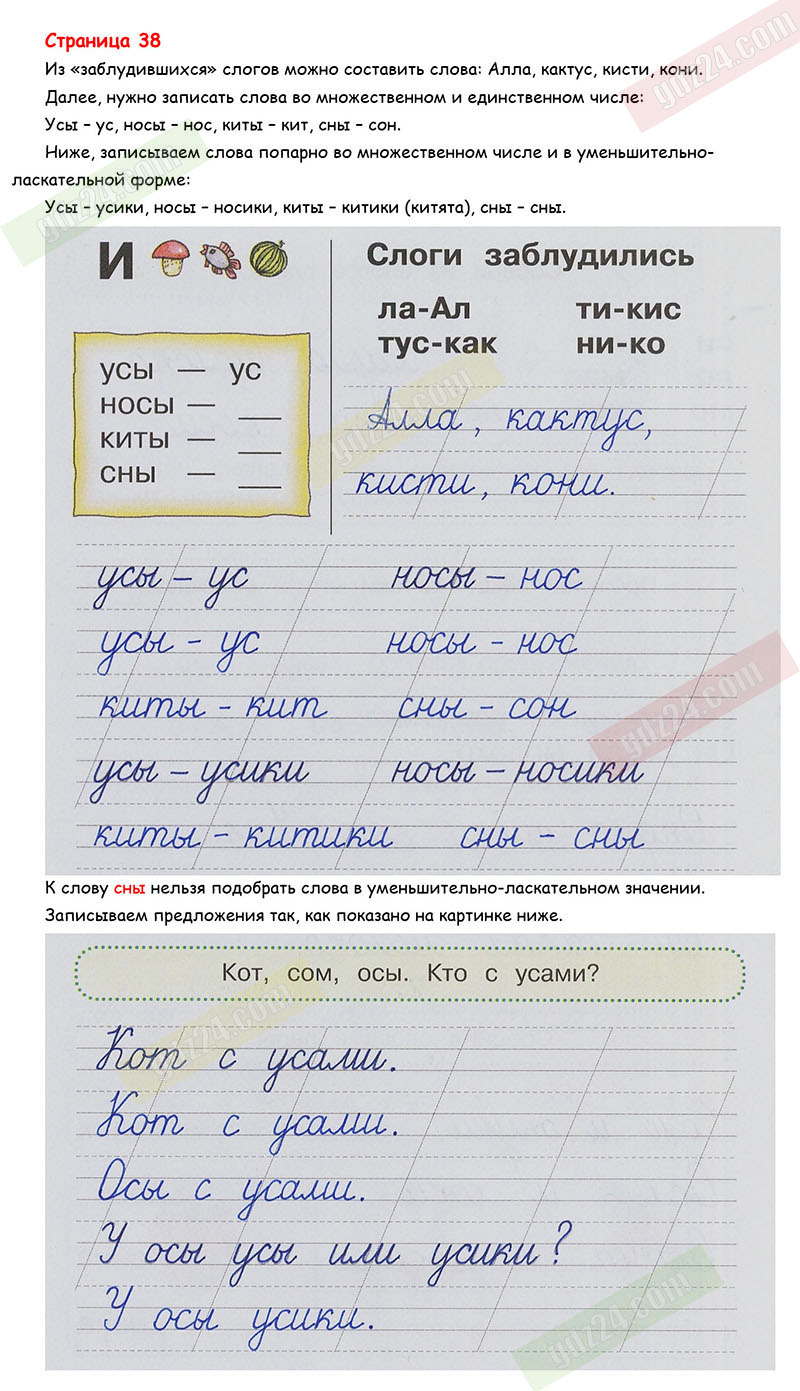 Страница 38
Из «заблудившихся» слогов можно составить слова: Алла, кактус, кисти, кони.
Далее, нужно записать слова во множественном и единственном числе:
Усы – ус, носы – нос, киты – кит, сны – сон.
Ниже, записываем слова попарно во множественном числе и в уменьшительно-
ласкательной форме:
Усы – усики, носы – носики, киты – китики (китята), сны – сны.
И
усы — ус
носы — ___
киты — ___
сны — ___
Слоги заблудились
ла-Ал ти-кис
тус-как ни-ко
Алла, кактус,
кисти, кони.
усы – ус носы – нос
усы - ус носы - нос
киты - кит сны - сон
усы – усики носы – носики
киты - китики сны - сны
К слову сны нельзя подобрать слова в уменьшительно-ласкательном значении.
Записываем предложения так, как показано на картинке ниже.
Кот, сом, осы. Кто с усами?
Кот с усами.
Кот с усами.
Осы с усами.
У осы усы или усики?
У осы усики.
gdz24.com
gdz24.com
gdz24.com
gdz24.com
gdz24.com
gdz24.com